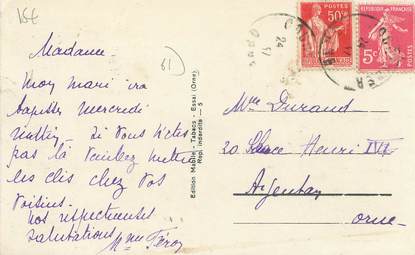 15€
Madame
Mon mari ira
tapisser mercredi
matin - si vous n'êtes
pas là veuillez mettre
les clés chez vos
voisins.
Nos respectueuses
salutations
Mme
61
Edition Mabille - Tabacs - Essai (Orne)
Repr. interdite - 5
50c
POSTES
RÉPUBLIQUE FRANÇAISE
5c
POSTES
Mme Durand
20 Henri IV
Argentan
Orne